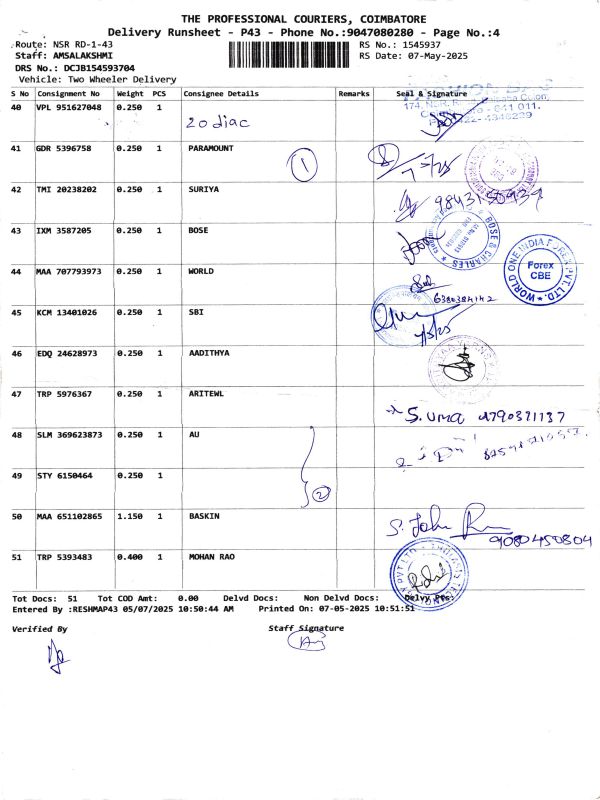 THE PROFESSIONAL COURIERS, COIMBATORE
Delivery Runsheet - P43 - Phone No.:9047080280 - Page No.:4
Route: NSR RD-1-43 RS No.: 1545937
Staff: AMSALAKSHMI RS Date: 07-May-2025
DRS No.: DCJB154593704
Vehicle: Two Wheeler Delivery
S No Consignment No Weight PCS Consignee Details Remarks Seal & Signature
40 VPL 951627048 0.250 1
Zodiac
174, NSR.
641 011.
4346239
41 GDR 5396758 0.250 1 PARAMOUNT
1
7-5-25
42 TMI 20238202 0.250 1 SURIYA
43 IXM 3587205 0.250 1 BOSE
BOSE & CHARLES
44 MAA 707793973 0.250 1 WORLD
WORLD ONE INDIA FOREX PVT. LTD.
Forex
CBE
6380384142
45 KCM 13401026 0.250 1 SBI
7/5/25
46 EDQ 24628973 0.250 1 AADITHYA
47 TRP 5976367 0.250 1 ARITEWL
S. Uma 9790371137
48 SLM 369623873 0.250 1 AU
49 STY 6150464 0.250 1
2
50 MAA 651102865 1.150 1 BASKIN
S. John
9080450804
51 TRP 5393483 0.400 1 MOHAN RAO
Tot Docs: 51 Tot COD Amt: 0.00 Delvd Docs: Non Delvd Docs: Delvy Pts:
Entered By :RESHMAP43 05/07/2025 10:50:44 AM Printed On: 07-05-2025 10:51:51
Verified By Staff Signature